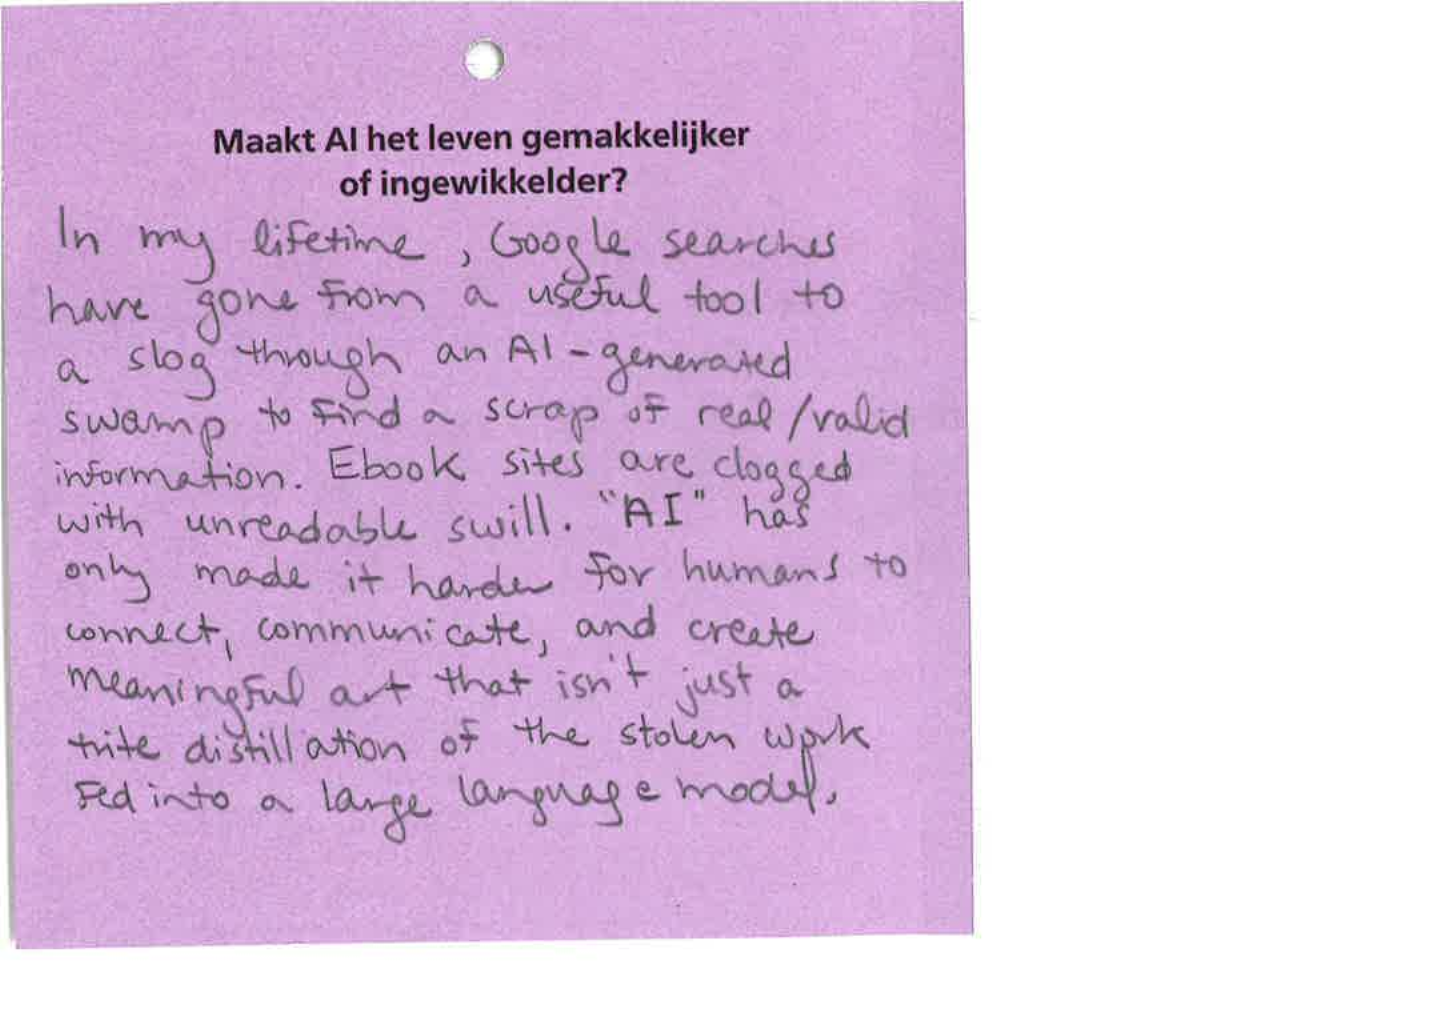 Maakt AI het leven gemakkelijker
of ingewikkelder?
In my lifetime, Google searches
have gone from a useful tool to
a slog through an AI-generated
swamp to find a scrap of real/valid
information. Ebook sites are clogged
with unreadable swill. "AI" has
only made it harder for humans to
connect, communicate, and create
meaningful art that isn't just a
trite distillation of the stolen work
fed into a large language model.